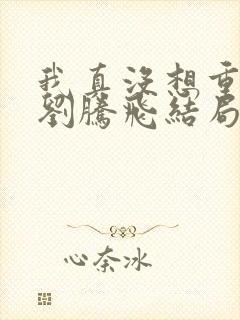 我真没想重
劉騰飛結局
心奈冰